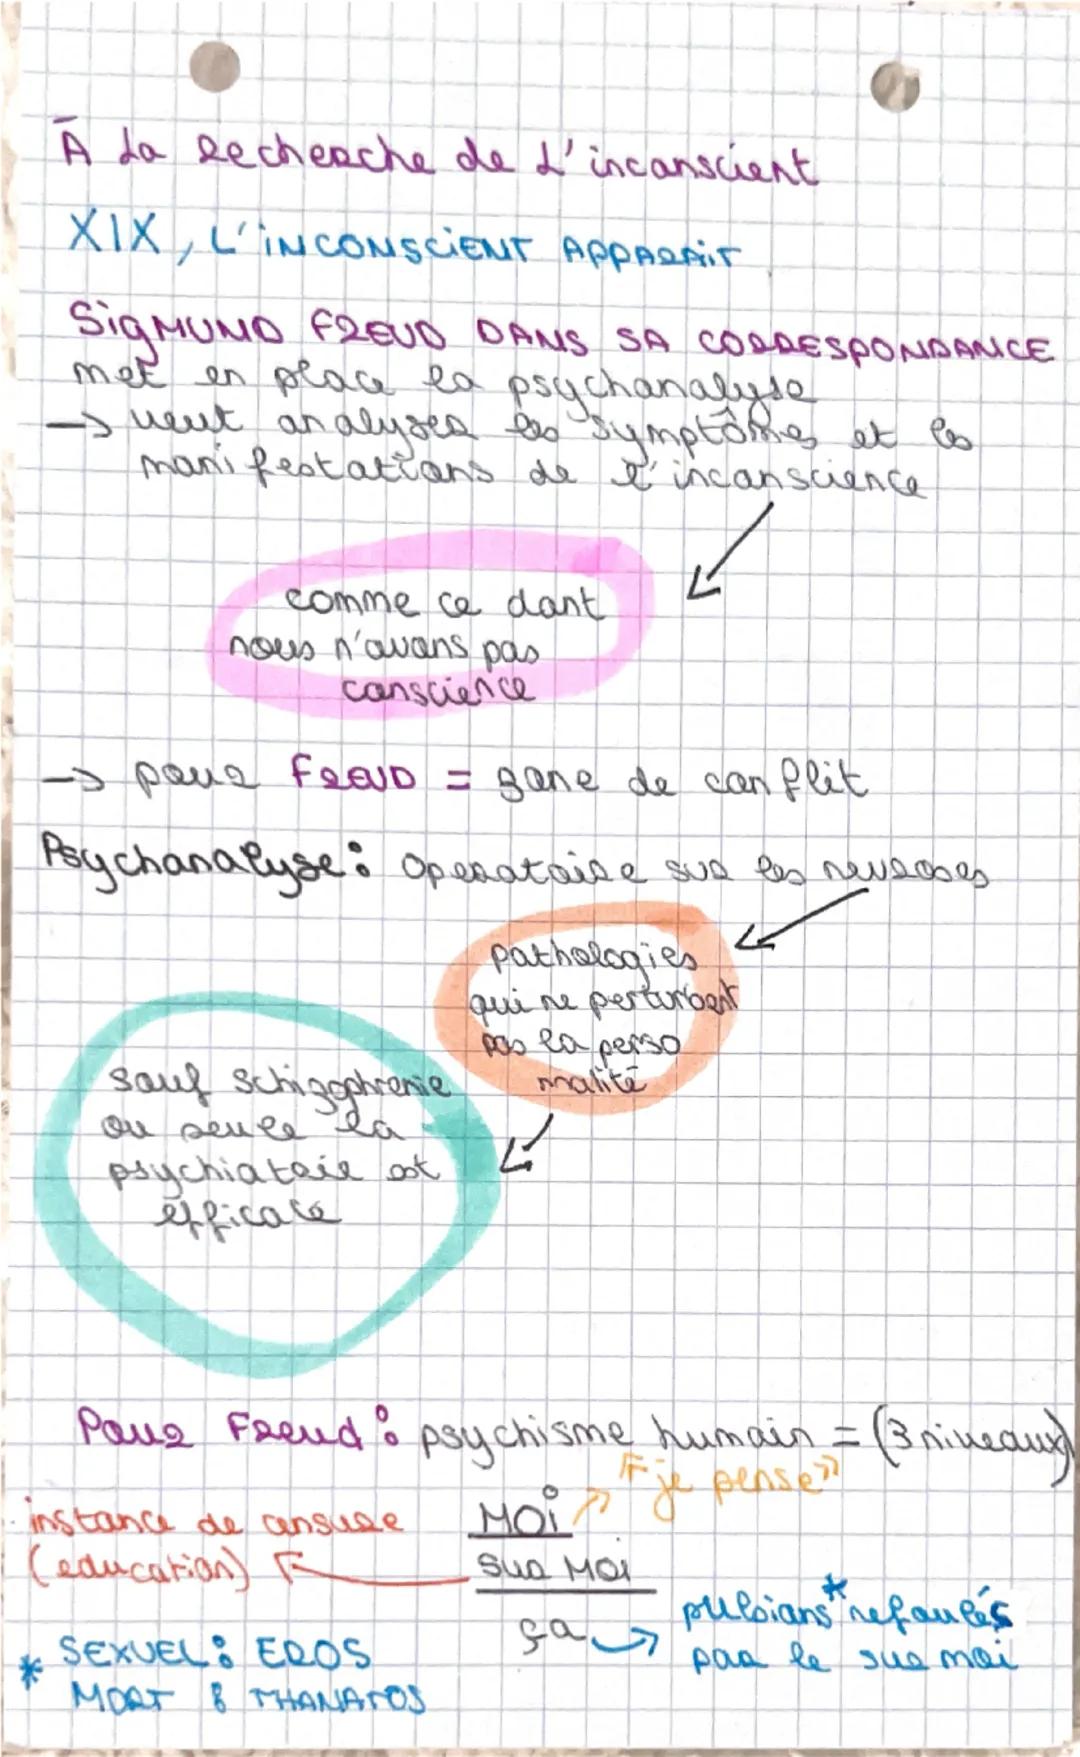 À la recherche de l'inconscient
XIX, L'INCONSCIENT APPARAIT
SIGMUND FREUD DANS SA CORRESPONDANCE
met en place la psychanalyse
→ veut analyser les symptômes et les
manifestations de l'inconscience
comme ce dont
nous n'avons pas
conscience
→ pour FREUD = zone de conflit
Psychanalyse : Operatoire sur les nevroses
pathologies
qui ne perturbent
pas la perso
nnalité
sauf schizophrenie
ou seule la
psychiatrie est
efficace
Pour Freud : psychisme humain = (3 niveaux)
"je pense"
instance de censure
MOI
(education)
SUR MOI
ça → pulsions* refoulés
par le sur moi
* SEXUEL : EROS
MORT : THANATOS